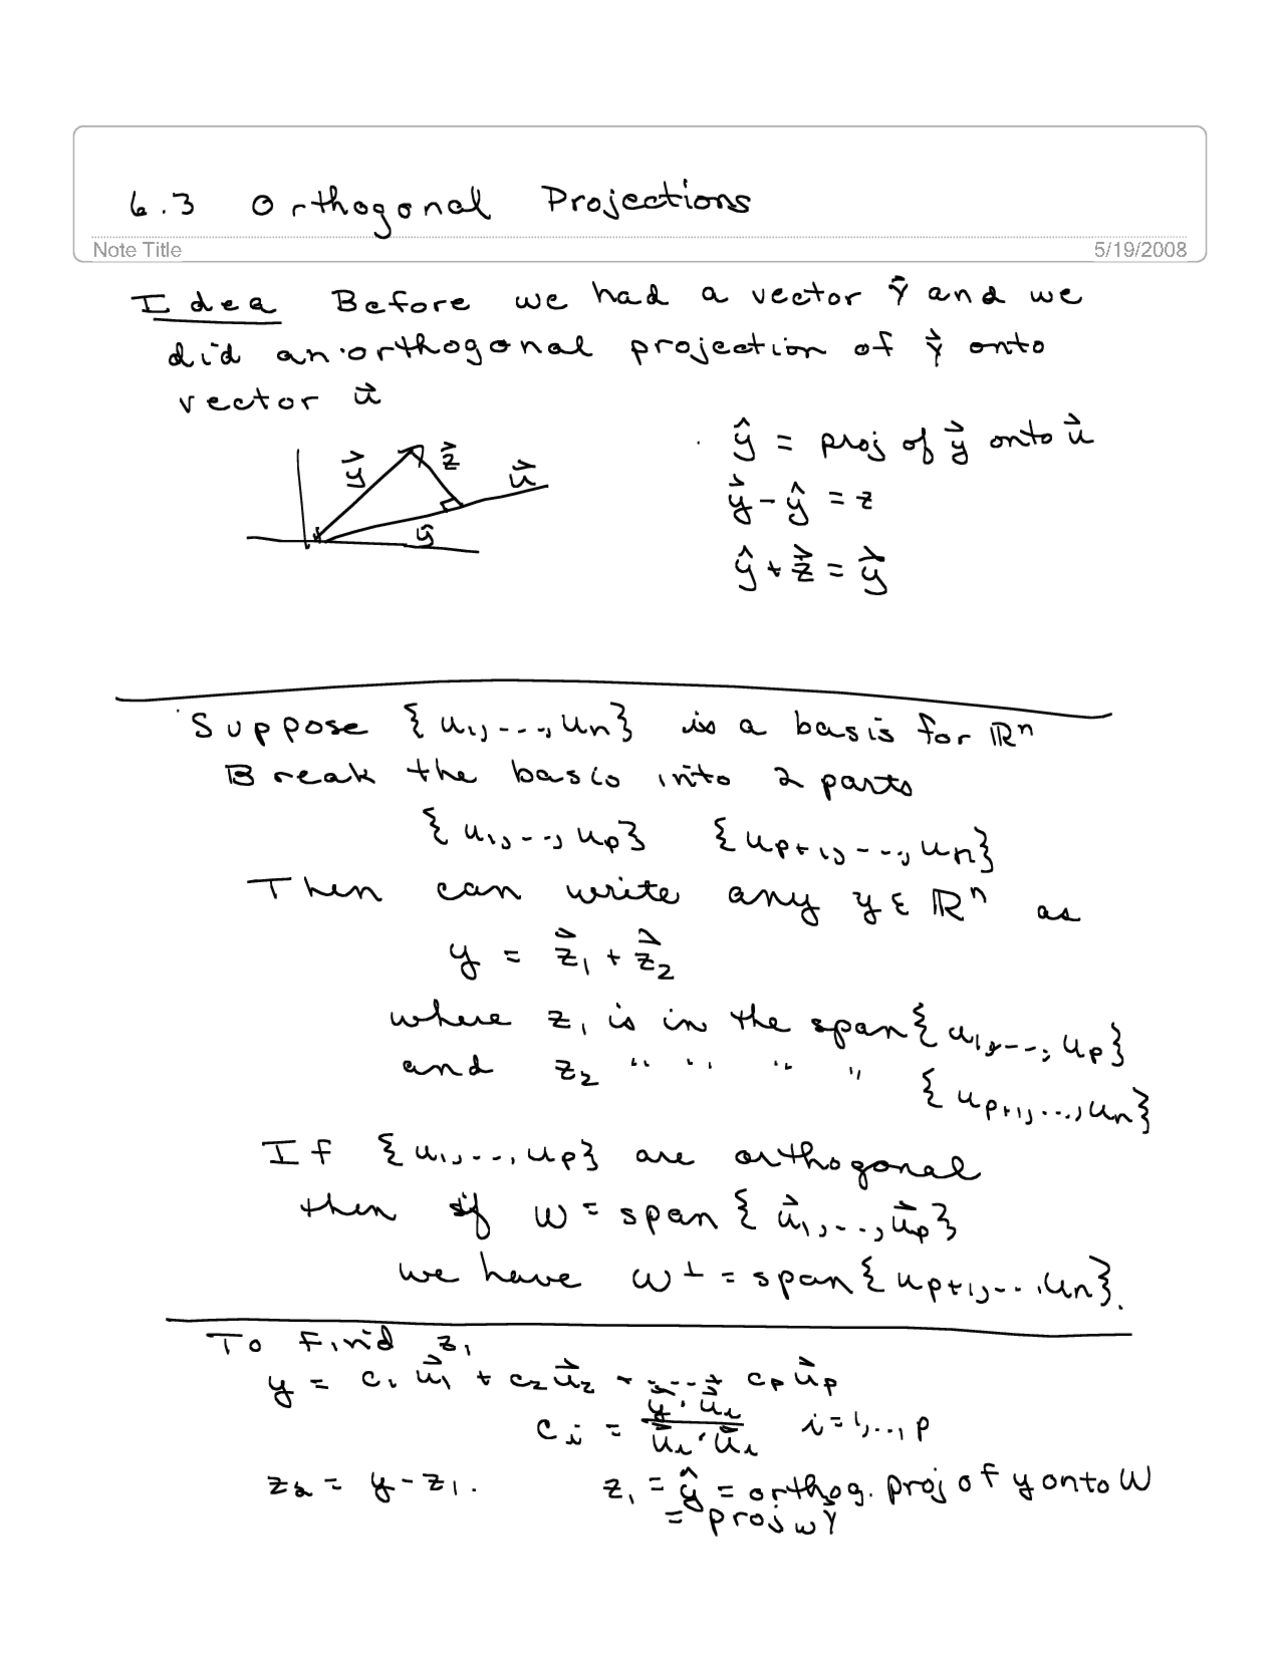 6.3 Orthogonal Projections
Note Title 5/19/2008
Idea Before we had a vector y⃗ and we
did an orthogonal projection of y⃗ onto
vector u⃗
y⃗ z⃗ u⃗
ŷ
ŷ = proj of y⃗ onto u⃗
y⃗ - ŷ = z
ŷ + z⃗ = y⃗
Suppose {u₁, ..., uₙ} is a basis for ℝⁿ
Break the basis into 2 parts
{u₁, .., uₚ} {uₚ₊₁, ..., uₙ}
Then can write any y ε ℝⁿ as
y = z⃗₁ + z⃗₂
where z₁ is in the span {u₁, ..., uₚ}
and z₂ " " " " {uₚ₊₁, ..., uₙ}
If {u₁, ..., uₚ} are orthogonal
then if W = span {u⃗₁, ..., u⃗ₚ}
we have W⊥ = span {uₚ₊₁, ... uₙ}.
To Find z₁
y = c₁u⃗₁ + c₂u⃗₂ + ... + cₚu⃗ₚ
cᵢ = (y⃗ · u⃗ᵢ)/(u⃗ᵢ · u⃗ᵢ) i = 1, .., p
z₂ = y - z₁. z₁ = ŷ = orthog. proj of y onto W
= proj_W y⃗